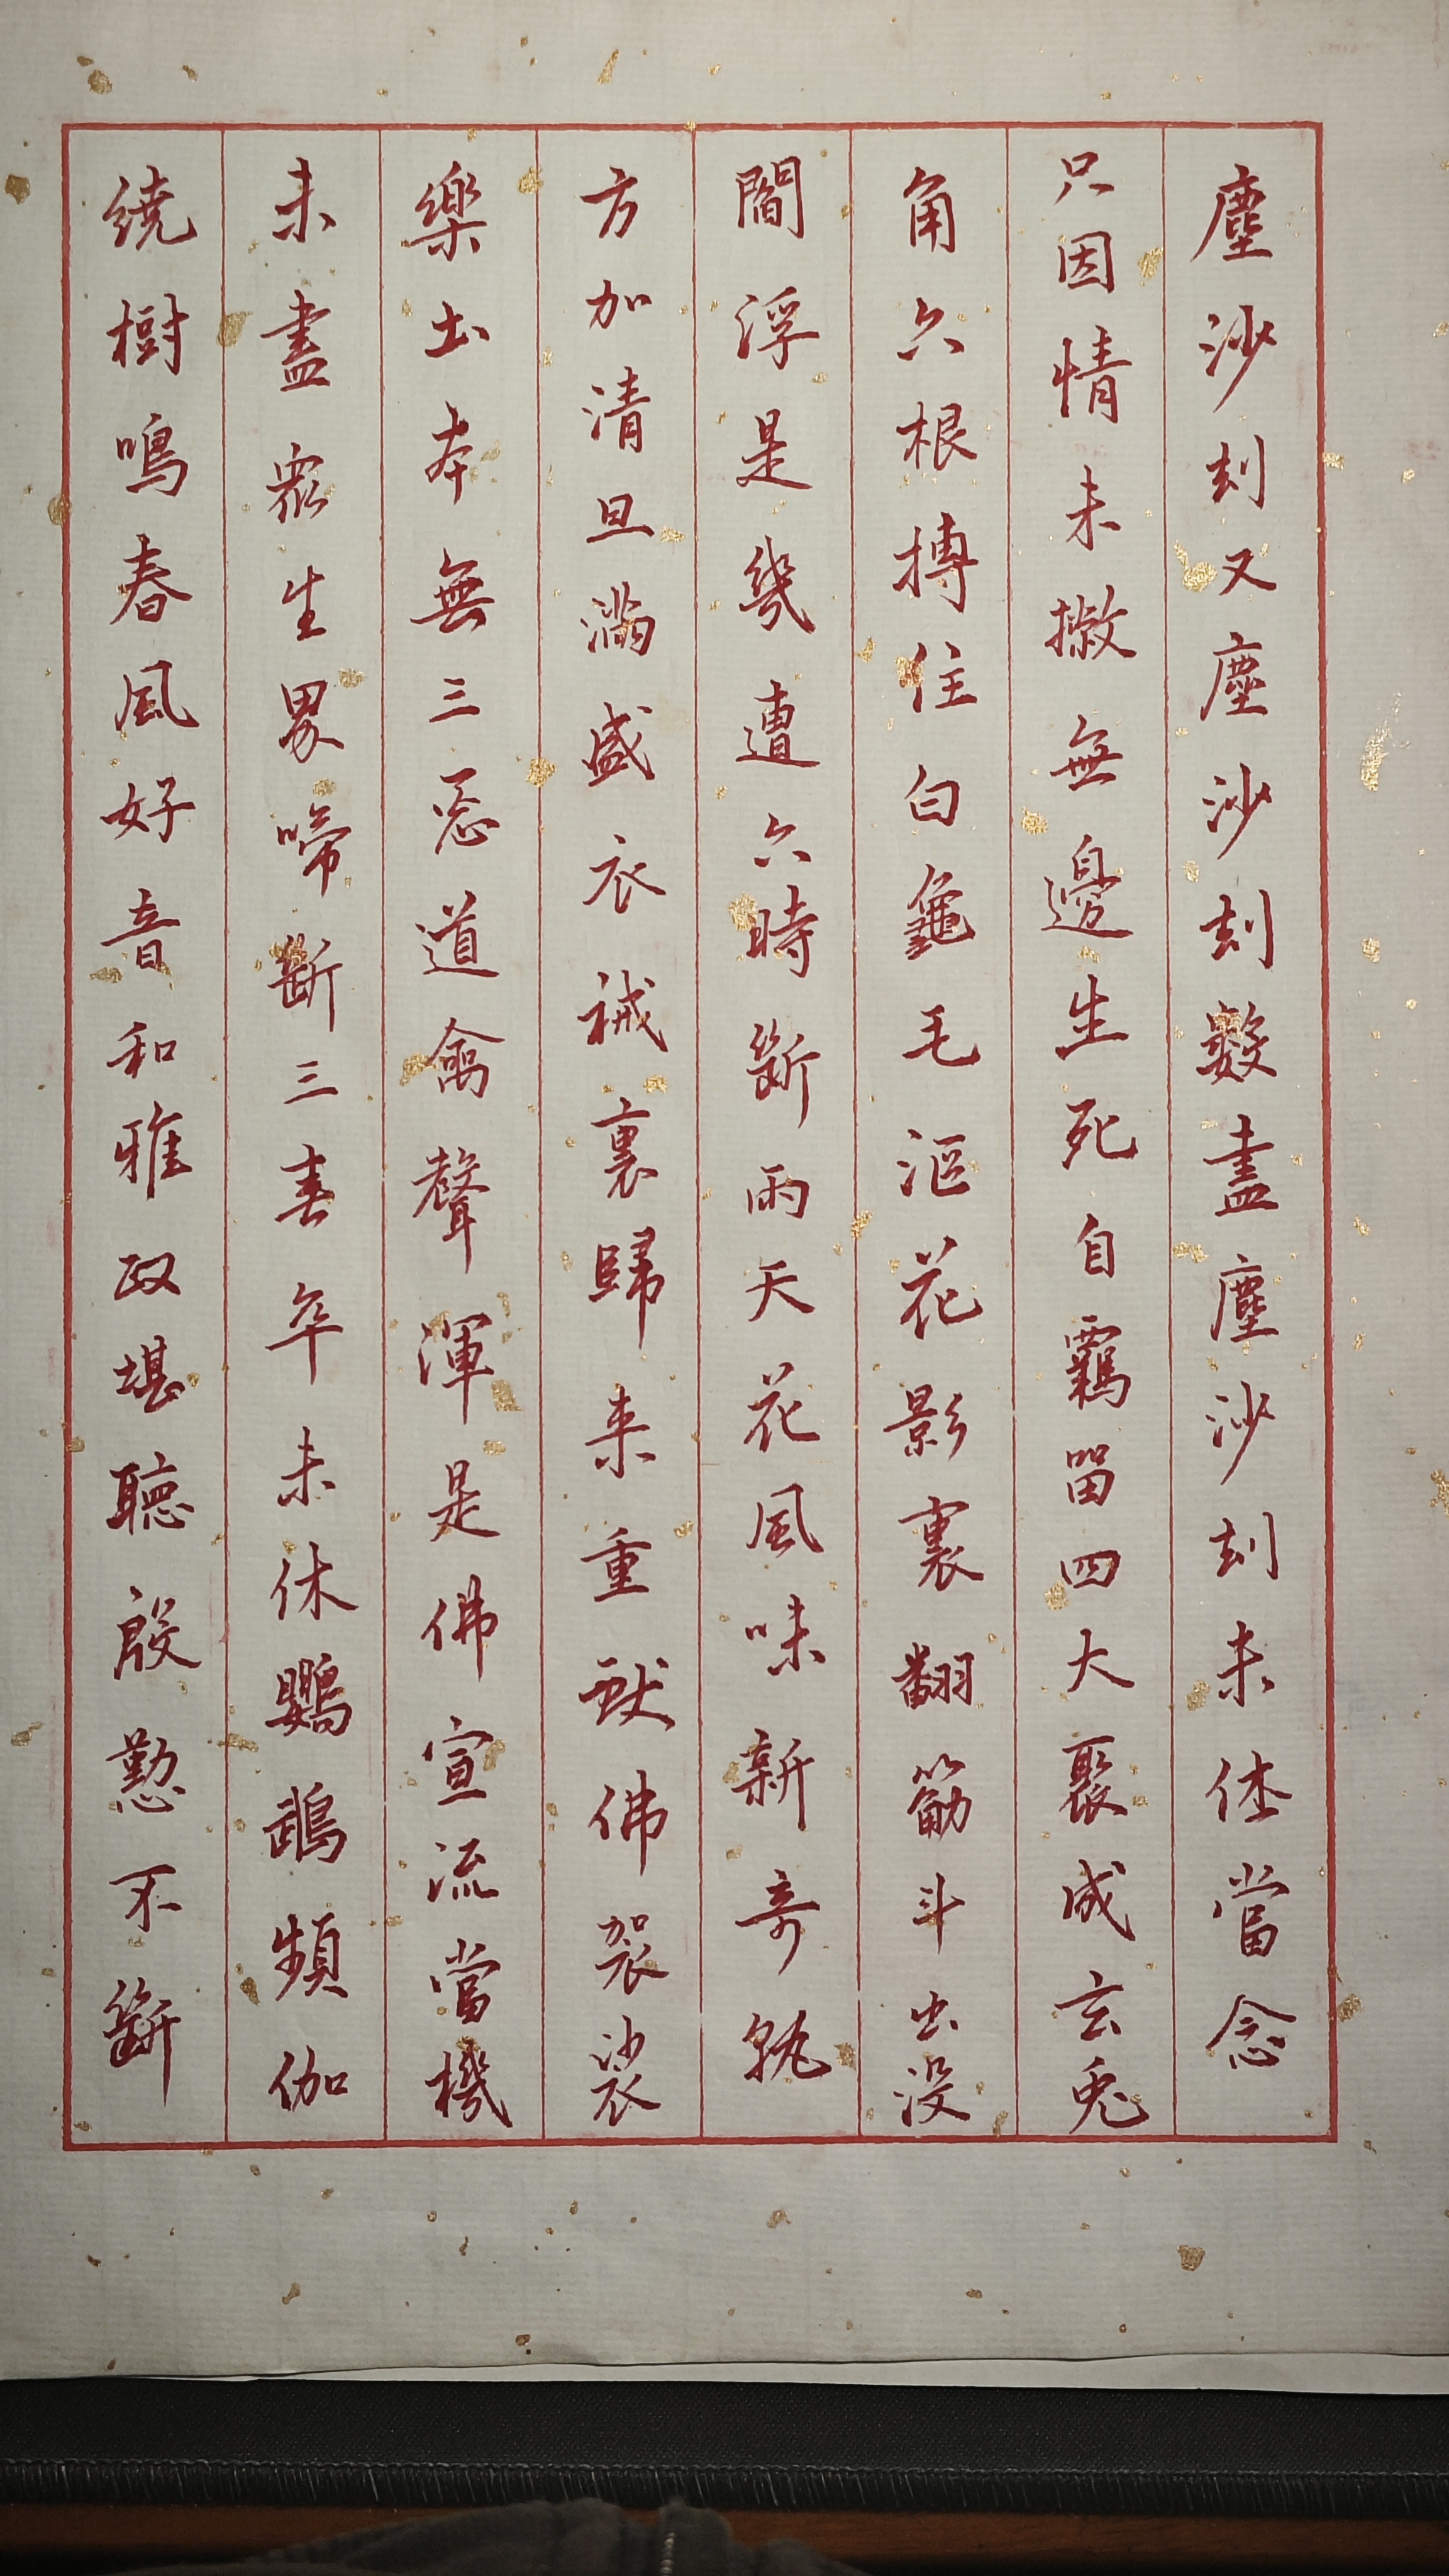 塵沙刻又塵沙刻數盡塵沙刻未休當念
只因情未撇無邊生死自羈留四大聚成玄兎
角六根搏住白龜毛漚花影裏翻筋斗出没
閻浮是幾遭六時斷雨天花風味新奇孰
方加清旦滿盛衣祴裏歸来重獻佛袈裟
樂土夲無三惡道禽聲渾是佛宣流當機
未盡衆生界啼斷三春卒未休鸚鵡頻伽
繞樹鳴春風好音和雅政堪聽殷懃不斷